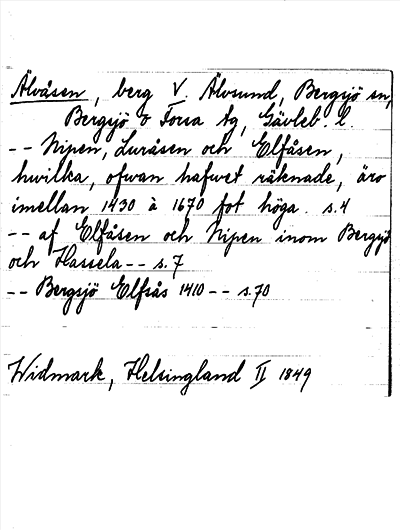 Älvåsen, berg V. Älvsund, Bergsjö sn,
Bergsjö o Forsa tg, Gävleb. l.
-- Nipen, Luråsen och Elfåsen,
hwilka, ofwan hafwet räknade, äro
imellan 1430 à 1670 fot höga. s.4
-- af Elfåsen och Nipen inom Bergsjö
och Hassela -- s.7
-- Bergsjö Elfsås 1410 -- s.70
Widmark, Helsingland II 1849